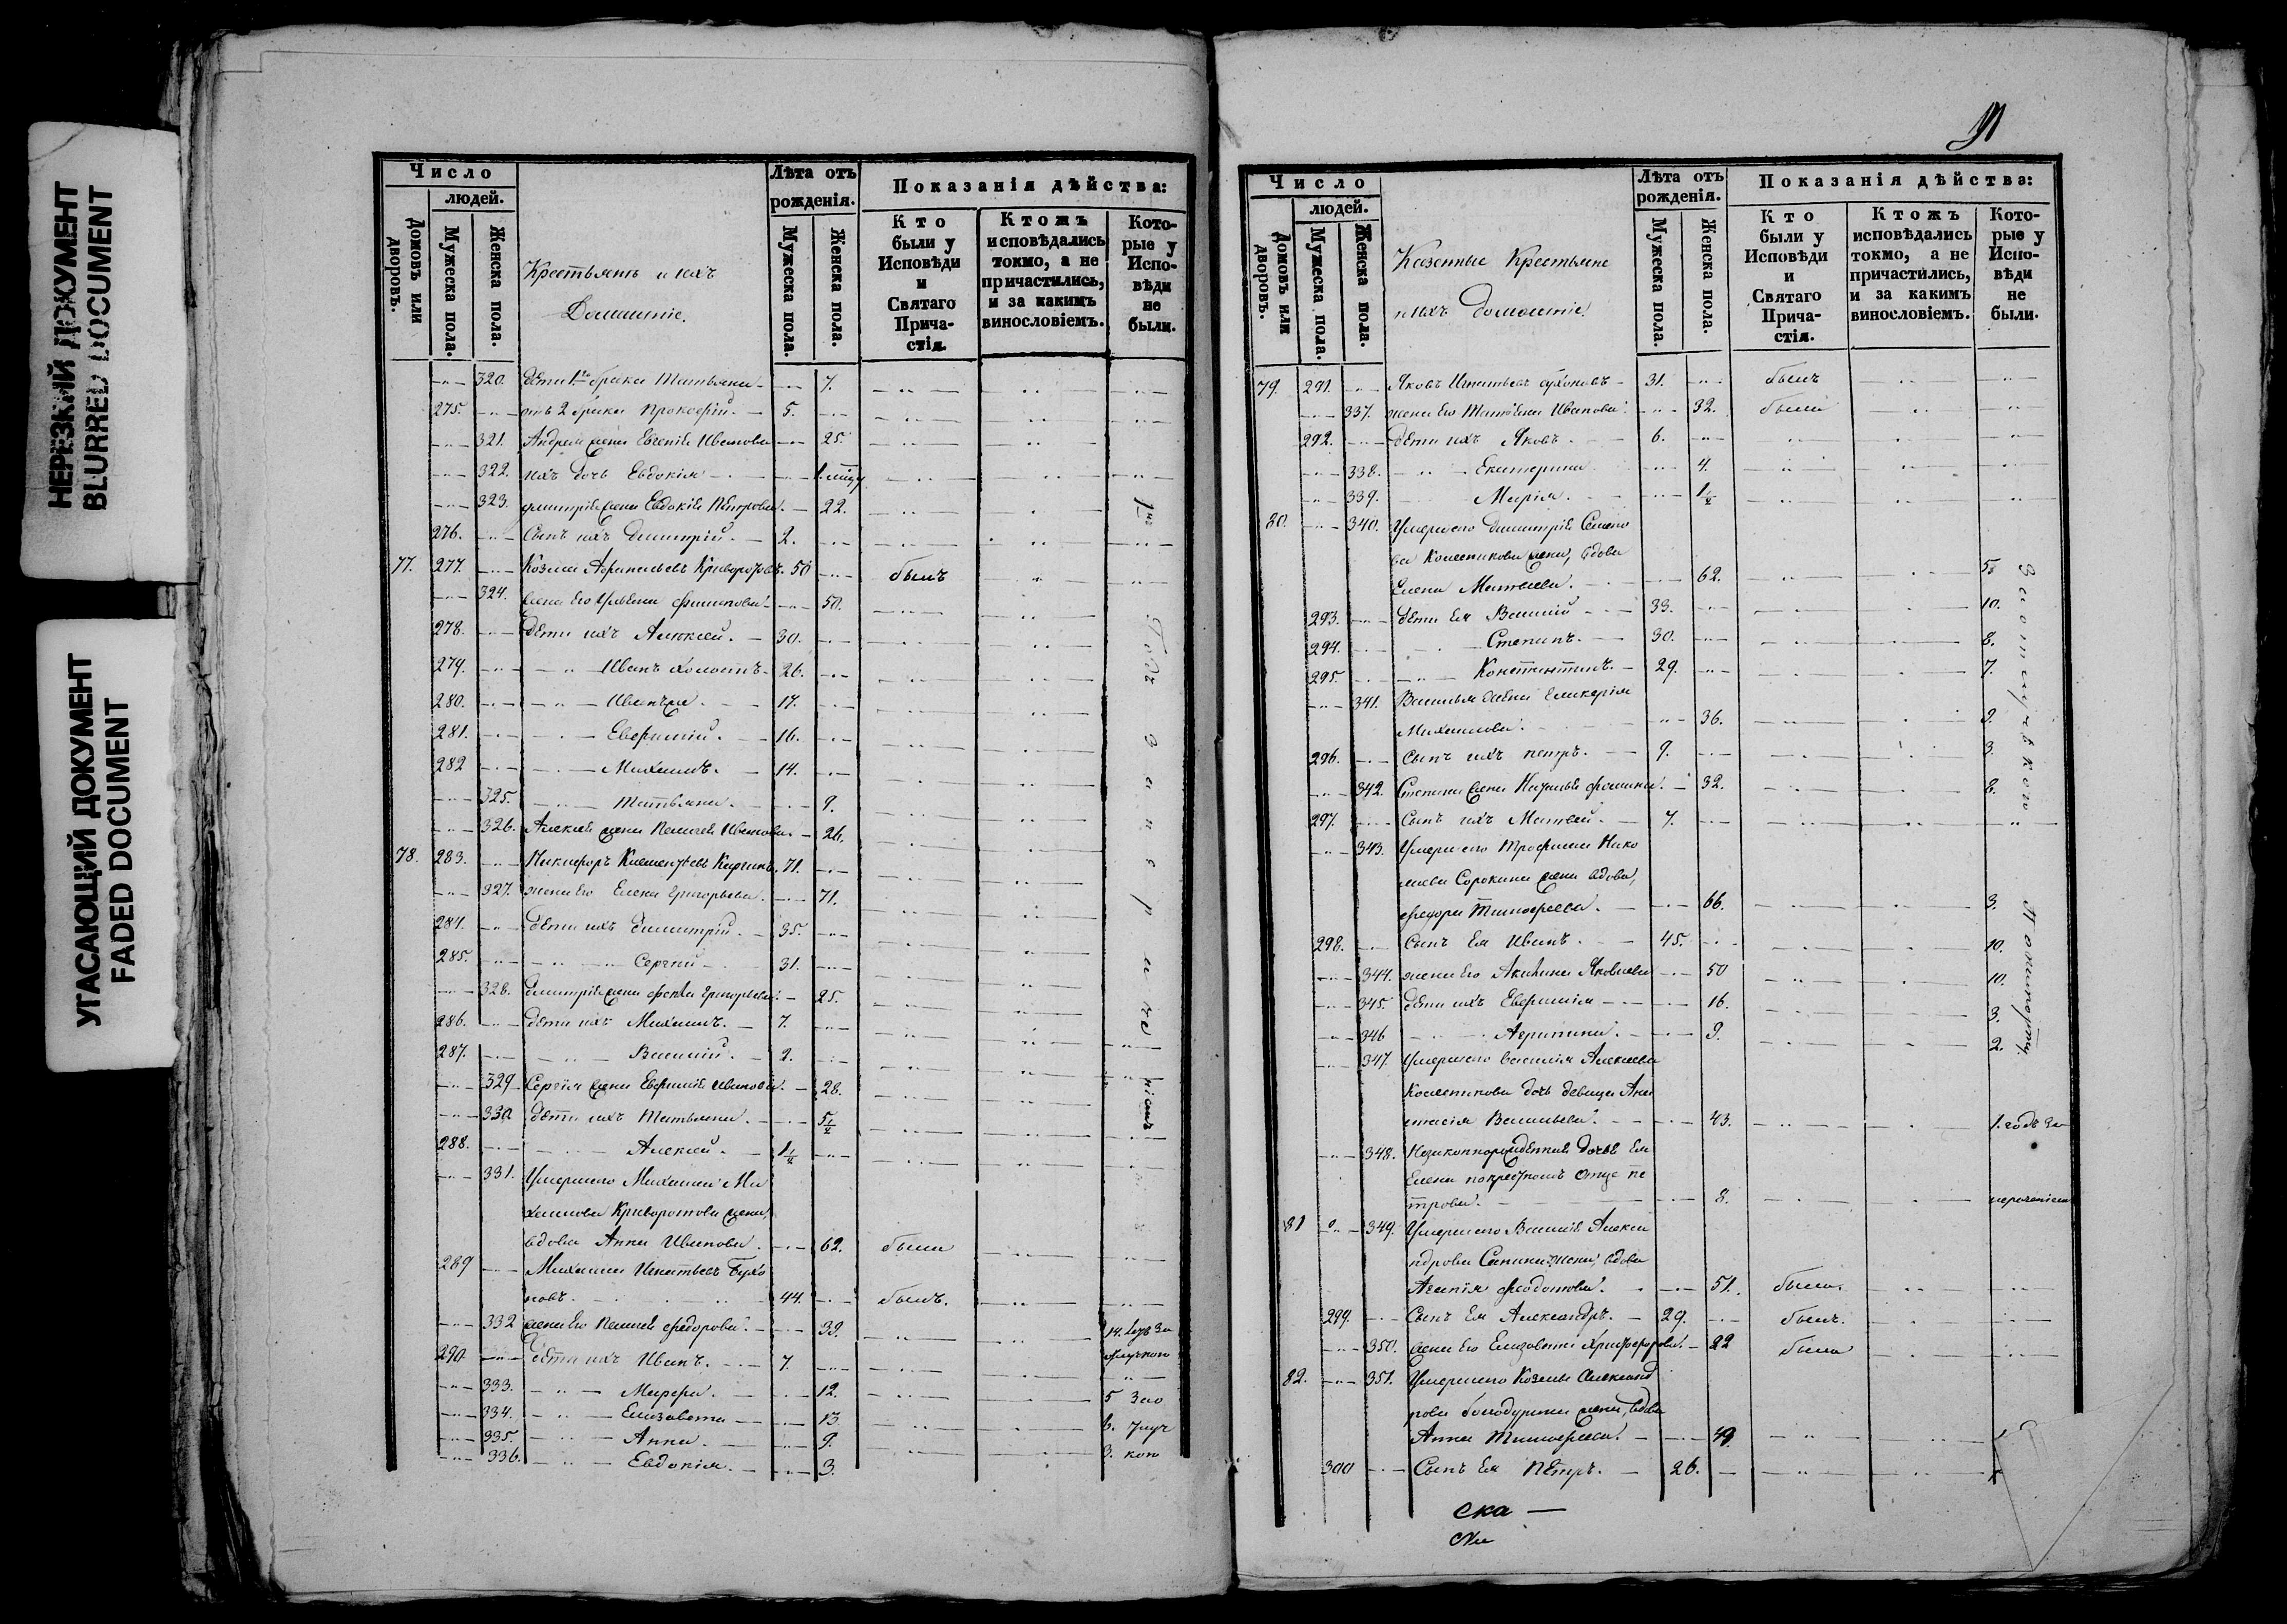 НЕРЕЗКИЙ ДОКУМЕНТ
BLURRED DOCUMENT
УГАСАЮЩИЙ ДОКУМЕНТ
FADED DOCUMENT
Число
людей.
Домовъ или дворовъ.
Мужеска пола.
Женска пола.
Крестьянъ и ихъ
Домашніе.
Лѣта отъ рожденія.
Мужеска пола.
Женска пола.
Показанія дѣйства:
Кто были у Исповѣди и Святаго Прича-стія.
Ктожъ исповѣдались токмо, а не причастились, и за какимъ винословіемъ.
Кото-рые у Испо-вѣди не были.
320. дѣти 1го брака Татьяна 7.
275. отъ 2 брака Прокофій. 5.
321. Андрея жена Евгенія Иванова 25.
322. ихъ дочь Евдокія
323. Димитрія жена Евдокія Петрова. 22.
276. Сынъ ихъ Димитрій. 2.
77. 277. Козма Афанасьевъ Криворотовъ. 50 былъ
324. жена Его Ульяна Филипова 50.
278. дѣти ихъ Алексей. 30.
279. Иванъ холостъ 26.
280. Иванъ 17.
281. Евфимій. 16.
282 Михаилъ. 14.
325. Татьяна. 9.
326. Алексея жена Пелагея Иванова. 26.
78. 283. Никифоръ Климентьевъ 71.
327. жена Его Елена Григорьева. 71.
284. дѣти ихъ Димитрій. 35.
285. Сергій 31.
328. Димитрія жена Фекла Григорьева. 25.
286. дѣти ихъ Михаилъ. 7.
287. Василій. 2.
329 Сергія жена Евфимія Иванова. 28.
330 дѣти ихъ Татьяна. 5½
288. Алексей. 1½
331. Умершаго Михаила Ми
хаилова Криворотова жена,
вдова Анна Иванова. 62. была
289 Михаилъ Игнатьевъ Сухо
новъ. 44. былъ.
332 жена Его Пелагея Федорова. 39. 14. годъ За
290 дѣти ихъ Иванъ. 7. отлучкою
333. Марфа. 12. 5 Зао
334. Елизавета 13. 6. тлуч
335. Анна. 9. 3. кою
336. Евдокія. 3.
Число
людей.
Домовъ или дворовъ.
Мужеска пола.
Женска пола.
Казенные Крестьяне
и ихъ домашніе.
Лѣта отъ рожденія.
Мужеска пола.
Женска пола.
Показанія дѣйства:
Кто были у Исповѣди и Святаго Прича-стія.
Ктожъ исповѣдались токмо, а не причастились, и за какимъ винословіемъ.
Кото-рые у Испо-вѣди не были.
79. 291. Яковъ Игнатьевъ Сухоновъ 31. былъ
337. жена Его Татьяна Иванова. 32. была
292. дѣти ихъ Яковъ. 6.
338. Екатерина 4.
339. Марія. 1½
80. 340. Умершаго Димитрія Семено
ва Колесникова жена, вдова
Елена Матвеева. 62. 5
293. дѣти Ея Василій 33. 10.
294. Степанъ. 30. 8.
295. Константинъ. 29. 7.
341. Василья жена Гликерія
Михаилова. 36. 9.
296. Сынъ ихъ Петръ. 9. 3.
342. Степана жена Наталья Фомина. 32. 8.
297. Сынъ ихъ Матвей. 7.
343. Умершаго Трофима Нико
лаева Сорокина жена вдова,
Федора Тимофеева. 66. 3.
298. Сынъ Ея Иванъ. 45. 10.
344. жена Его Акилина Яковлева 50 10.
345. дѣти ихъ Евфимія 16. 3.
346 Агрипина. 9. 2.
347. Умершаго Василія Алексеева
Колесникова дочь девица Ана
стасія Васильева. 43. 1. годъ За
348. Незаконнорожденная дочь Ея
Елена по крестномъ Отце Пе
трова. 8. нерачѣніемъ
81 349. Умершаго Василія Алекса
ндрова жена, вдова
Агапія Федотова. 51. была.
299. Сынъ Ея Александръ. 29. былъ.
350. жена Его Елизавета Христофорова. 22 была
82. 351. Умершаго Козмы Александ
рова жена, вдова
Анна Тимофеева. 49.
300 Сынъ Ея Петръ. 26.
ска —